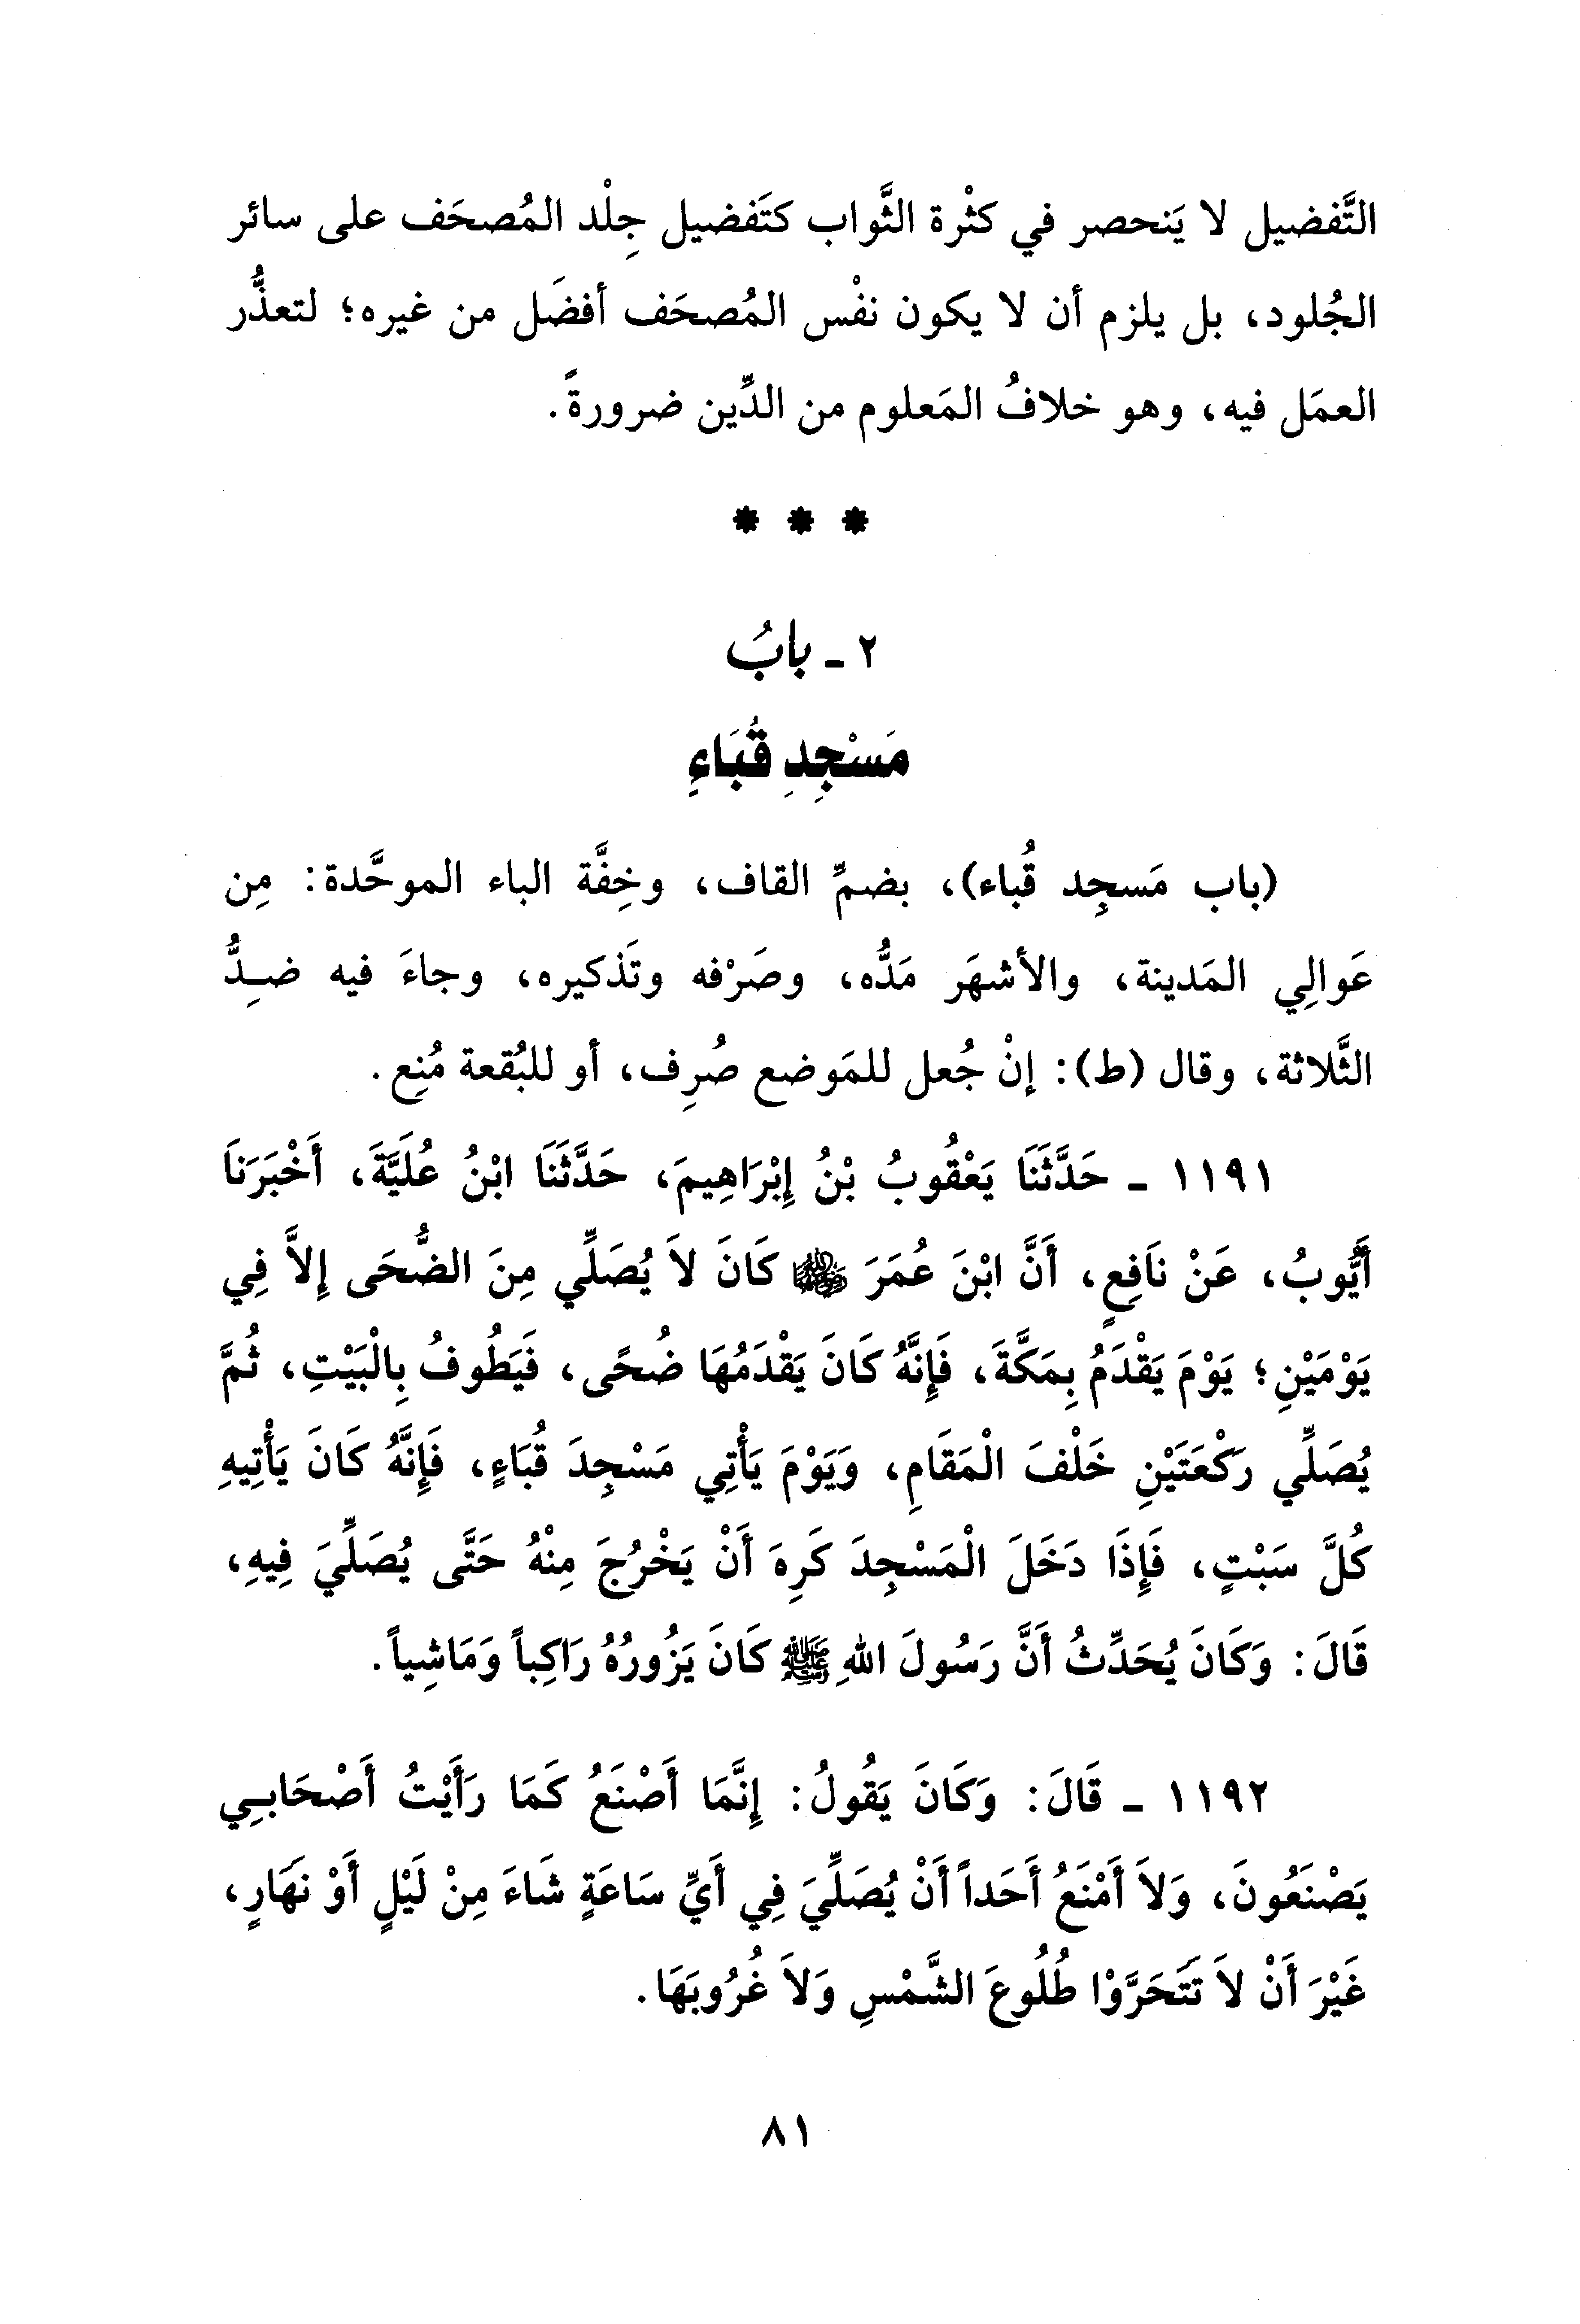 التَّفضيل لا يَنحصر في كثْرة الثَّواب كتَفضيل جِلْد المُصحَف على سائر
الجُلود، بل يلزم أن لا يكون نفْس المُصحَف أفضَل من غيره؛ لتعذُّر
العمَل فيه، وهو خلافُ المَعلوم من الدِّين ضرورةً.
* * *
٢ - بابُ
مَسْجِدِ قُبَاءِ
(باب مَسجِد قُباء)، بضمِّ القاف، وخِفَّة الباء الموحَّدة: مِن
عَوالِي المَدينة، والأشهَر مَدُّه، وصَرْفه وتَذكيره، وجاءَ فيه ضِدُّ
الثَّلاثة، وقال (ط): إنْ جُعل للمَوضع صُرِف، أو للبُقعة مُنِع.
١١٩١ - حَدَّثَنَا يَعْقُوبُ بْنُ إِبْرَاهِيمَ، حَدَّثَنَا ابْنُ عُلَيَّةَ، أَخْبَرَنَا
أَيُّوبُ، عَنْ نَافِعٍ، أَنَّ ابْنَ عُمَرَ ﵁ كَانَ لاَ يُصَلِّي مِنَ الضُّحَى إِلاَّ فِي
يَوْمَيْنِ؛ يَوْمَ يَقْدَمُ بِمَكَّةَ، فَإِنَّهُ كَانَ يَقْدَمُهَا ضُحًى، فَيَطُوفُ بِالْبَيْتِ، ثُمَّ
يُصَلِّي رَكْعَتَيْنِ خَلْفَ الْمَقَامِ، وَيَوْمَ يَأْتِي مَسْجِدَ قُبَاءٍ، فَإِنَّهُ كَانَ يَأْتِيهِ
كُلَّ سَبْتٍ، فَإِذَا دَخَلَ الْمَسْجِدَ كَرِهَ أَنْ يَخْرُجَ مِنْهُ حَتَّى يُصَلِّيَ فِيهِ،
قَالَ: وَكَانَ يُحَدِّثُ أَنَّ رَسُولَ اللهِ ﷺ كَانَ يَزُورُهُ رَاكِباً وَمَاشِياً.
١١٩٢ - قَالَ: وَكَانَ يَقُولُ: إِنَّمَا أَصْنَعُ كَمَا رَأَيْتُ أَصْحَابِي
يَصْنَعُونَ، وَلاَ أَمْنَعُ أَحَداً أَنْ يُصَلِّيَ فِي أَيِّ سَاعَةٍ شَاءَ مِنْ لَيْلٍ أَوْ نَهَارٍ،
غَيْرَ أَنْ لاَ تَتَحَرَّوْا طُلُوعَ الشَّمْسِ وَلاَ غُرُوبَهَا.
٨١